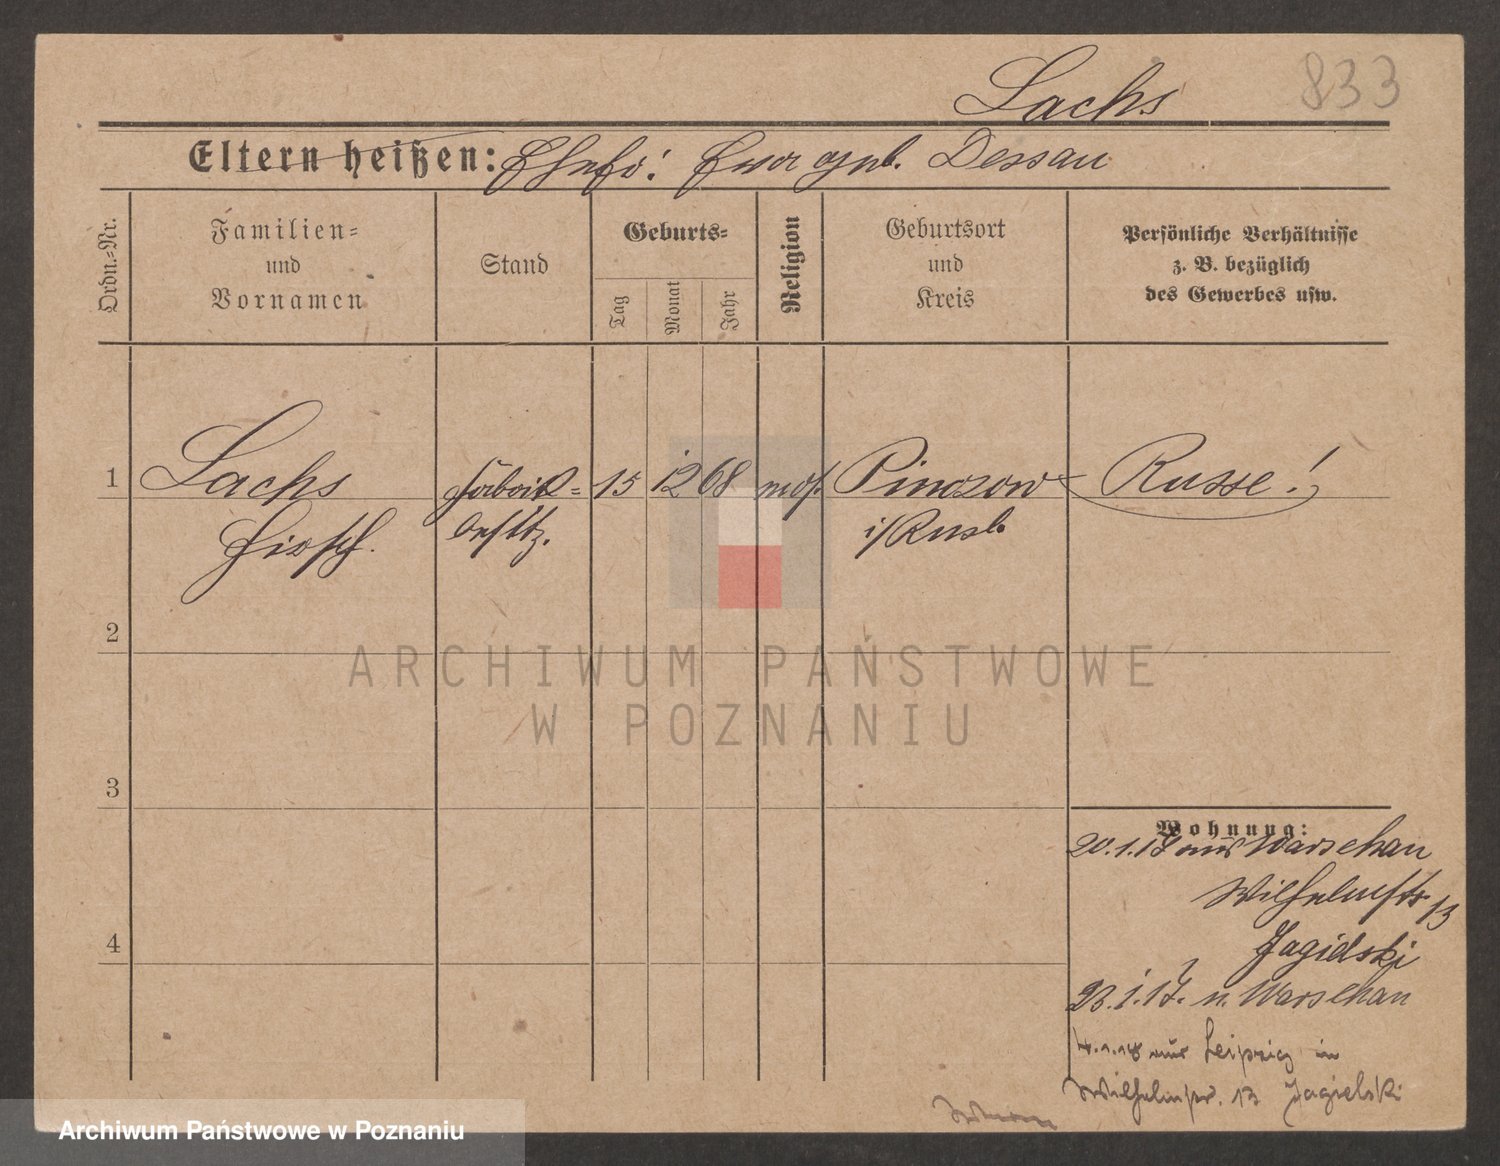 Sachs 833
Eltern heißen: Ehefr: Ewa geb. Dessau
Ordn.-Nr.
Familien-
und
Vornamen
Stand
Geburts-
Tag
Monat
Jahr
Religion
Geburtsort
und
Kreis
Persönliche Verhältnisse
z. B. bezüglich
des Gewerbes usw.
1 Sachs Fabrik- 15 12 68 mos. Pinczow Russe!
Hirsch. besitz. i/Rusl.
2
3
4
Wohnung:
20.1.17 aus Warschau
Wilhelmstr 13
Jagielski
23.1.17. n. Warschau
4.1.18 aus Leipzig in
Wilhelmstr. 13 Jagielski
ARCHIWUM PAŃSTWOWE
W POZNANIU
Archiwum Państwowe w Poznaniu